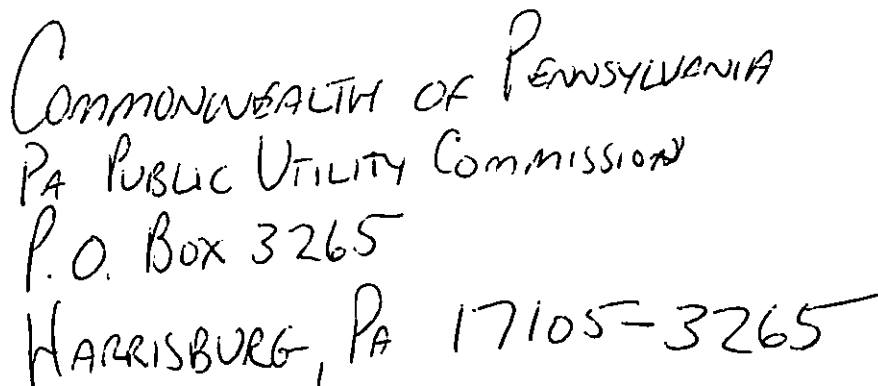 Commonwealth of Pennsylvania
PA Public Utility Commission
P.O. Box 3265
Harrisburg, PA 17105-3265